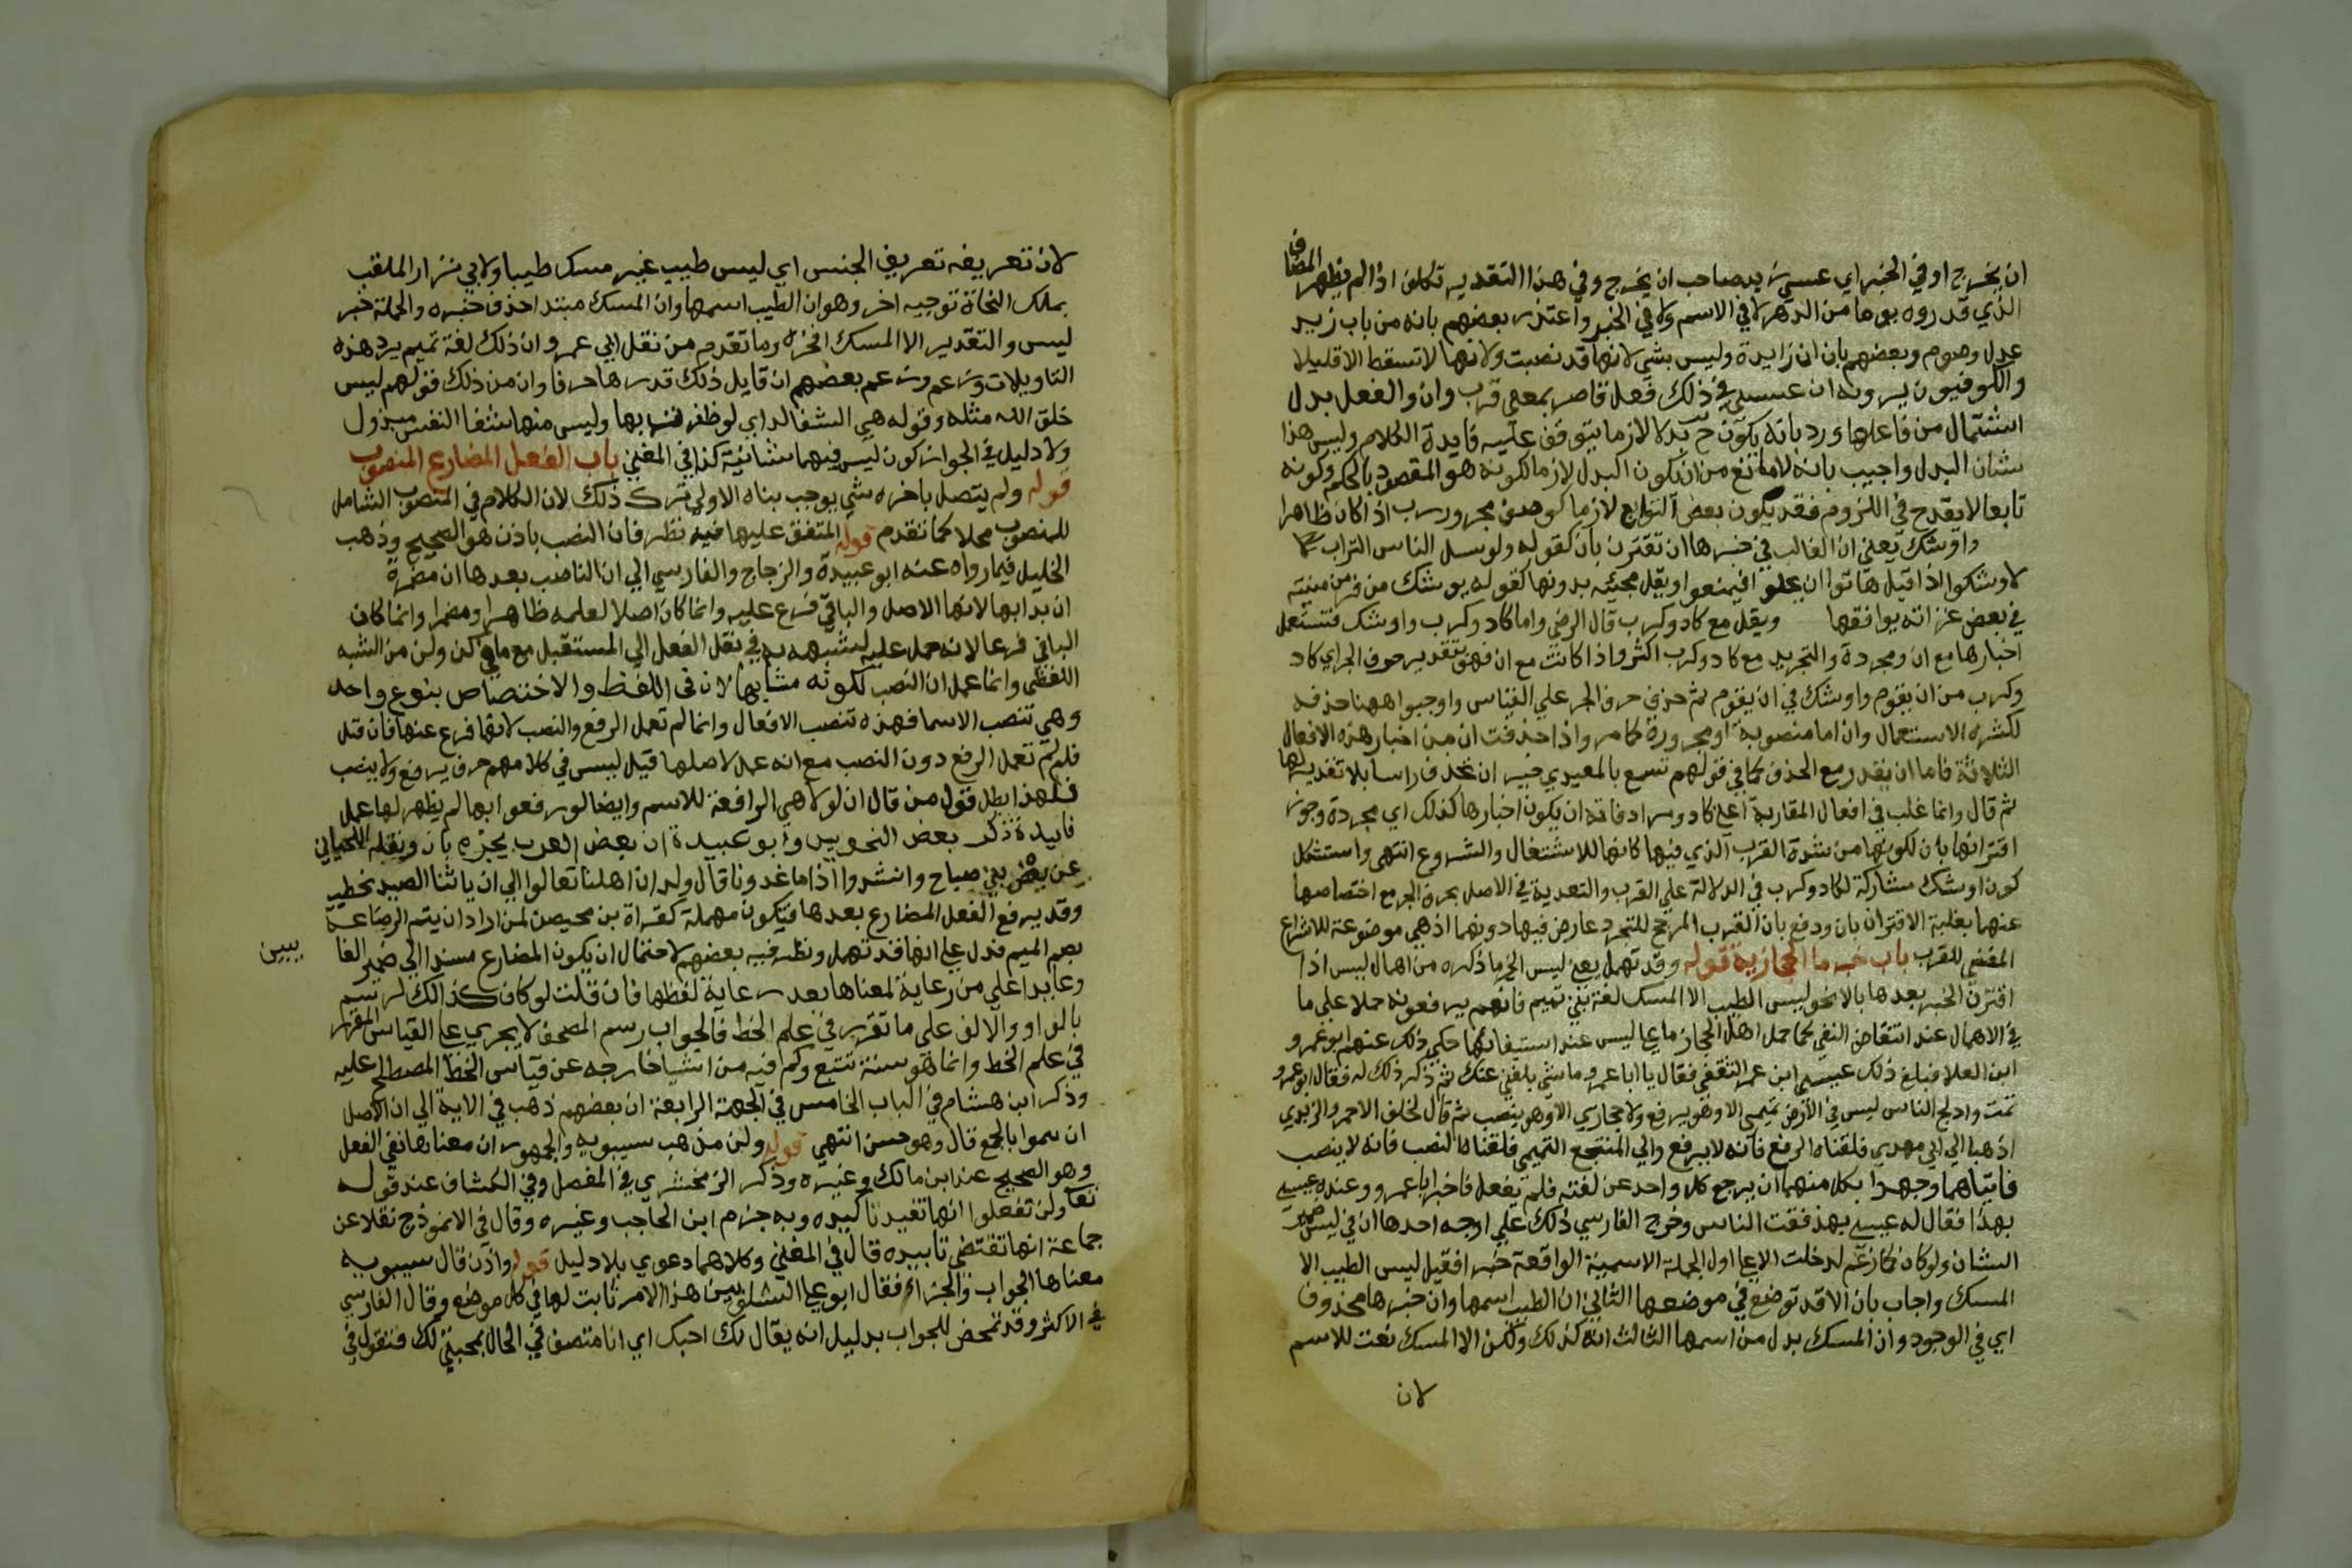 ان يخرج او في الخبر اي عسي زيد صاحب ان يخرج وفي هذا التقدير تكلف اذ لم يظهر المضاف
الذي قدروه يوما من الدهر لا في الاسم ولا في الخبر واعتذر بعضهم بانه من باب زيد
عدل وصوم وبعضهم بان ان زايدة وليس بشي لانها قد نصبت ولانها لا تسقط الا قليلا
والكوفيون يرون ان عسي في ذلك فعل قاصر بمعني قرب وان والفعل بدل
اشتمال من فاعلها ورد بانه يكون ح بدلا لازما يتوقف عليه فايدة الكلام وليس هذا
شان البدل واجيب بانه لا مانع من ان يكون البدل لازما لكونه هو المقصود بالحكم وكونه
تابعا لا يقدح في اللزوم فقد يكون بعض التوابع لازما كوصف مجرور رب اذا كان ظاهرا
واوشك يعني ان الغالب في خبرها ان تقترن بان كقوله ولو سل الناس التراب
لاوشكوا اذا قيل هاتوا ان يملوا فيمنعوا ويقل مجيئه بدونها كقوله يوشك من فر من منيته
في بعض غراته يوافقها ويقل مع كاد وكرب قال الرضي واما كاد وكرب واوشك فتستعمل
اخبارها مع ان ومجردة والتجريد مع كاد وكرب اكثر واذا كانت مع ان فهو بتقدير حرف الجر اي كاد
وكرب من ان يقوم واوشك في ان يقوم ثم حذف حرف الجر علي القياس واوجبوا ههنا حذفه
لكثرة الاستعمال وان اما منصوبة او مجرورة كما مر واذا حذفت ان من اخبار هذه الافعال
الثلاثة فاما ان يقدر مع الحذف كما في قولهم تسمع بالمعيدي خير ان تحذف راسا بلا تقدير لها
ثم قال وانما غلب في افعال المقاربة اعني كاد ومرادفاته ان يكون اخبارها كذلك اي مجردة وجوز
اقترانها بان لكونها من شدة القرب الذي فيها كانها للاشتغال والشروع انتهي واستشكل
كون اوشك مشاركة لكاد وكرب في الدلالة علي القرب والتعدية في الاصل بحرف الجر مع اختصاصها
عنهما بغلبة الاقتران بان ودفع بان القرب المرجح للتجرد عارض فيها دونهما اذ هي موضوعة للاسراع
المفضي للقرب باب خبر ما الحجازية قوله وقد تهمل يعني ليس الخ ما ذكره من اهمال ليس اذا
اقترن الخبر بعدها بالا نحو ليس الطيب الا المسك لغة بني تميم فانهم يرفعونه حملا علي ما
في الاهمال عند انتقاض النفي كما حمل اهل الحجاز ما علي ليس عند استيفائها حكي ذلك عنهم ابو عمرو
ابن العلا فبلغ ذلك عيسي ابن عمر الثقفي فقال يا ابا عمرو ما شي بلغني عنك ثم ذكر ذلك له فقال ابو عمرو
نمت وادلج الناس ليس في الارض تميمي الا وهو يرفع ولا حجازي الا وهو ينصب ثم قال لخلف الاحمر واليزيدي
اذهبا الي ابي مهدي فلقناه الرفع فانه لا يرفع والي المنتجع التميمي فلقناه النصب فانه لا ينصب
فاتياهما وجهدا بكل منهما ان يرجع كل واحد عن لغته فلم يفعل فاخبرا ابا عمرو وعنده عيسي
بهذا فقال له عيسي بهذا فقت الناس وخرج الفارسي ذلك علي اوجه احدها ان في ليس ضمير
الشان ولو كان كما زعم لدخلت الا علي اول الجملة الاسمية الواقعة خبرا فقيل ليس الطيب الا
المسك واجاب بان الا قد توضع في موضعها الثاني ان الطيب اسمها وان خبرها محذوف
اي في الوجود وان المسك بدل من اسمها الثالث انه كذلك ولكن الا المسك نعت للاسم
لان
لان تعريفه تعريف الجنس اي ليس طيب غير مسك طيبا ولابي نزار الملقب
بملك النحاة توجيه اخر وهو ان الطيب اسمها وان المسك مبتدا حذف خبره والجملة خبر
ليس والتقدير الا المسك افخره وما تقدم من نقل ابي عمرو ان ذلك لغة تميم يرد هذه
التاويلات وزعم بعضهم ان قايل ذلك قدرها حرفا وان من ذلك قولهم ليس
خلق الله مثله وقوله هي الشفا لداي لو ظفرت بها وليس منها شفا النفس مبذول
ولا دليل في الجواز كون ليس فيهما شانية كذا في المغني باب الفعل المضارع المنصوب
قوله ولم يتصل باخره شي يوجب بناه الاولي ترك ذلك لان الكلام في المنصوب الشامل
للمنصوب محلا كما تقدم قوله المتفق عليها فيه نظر فان النصب باذن هو الصحيح وذهب
الخليل فيما رواه عنه ابو عبيدة والزجاج والفارسي الي ان الناصب بعدها ان مضمرة
ان بدا بها لانها الاصل والباقي فرع عليه وانما كان اصلا لعلمه ظاهرا ومضمرا وانما كان
الباقي فرعا لانه حمل عليه لشبهه به في نقل الفعل الي المستقبل مع ما في كي ولن من الشبه
اللفظي وانما عمل ان النصب لكونه مشابها لان في اللفظ والاختصاص بنوع واحد
وهي تنصب الاسما فهذه تنصب الافعال وانما لم تعمل الرفع والنصب لانها فرع عنها فان قيل
فلم لم تعمل الرفع دون النصب مع انه عمل لاصلها قيل ليس في كلامهم حرف يرفع ولا ينصب
فلهذا بطل قول من قال ان لولا هي الرافعة للاسم وايضا لو رفعوا بها لم يظهر لها عمل
فايدة ذكر بعض النحويين وابو عبيدة ان بعض العرب يجزم بان ونقله اللحياني
عن بعض بني صباح وانشدوا اذا ما غدونا قال ولدان اهلنا تعالوا الي ان ياتنا الصيد نحطب
وقد يرفع الفعل المضارع بعدها فتكون مهملة كقراة بن محيصن لمن اراد ان يتم الرضاعة
بضم الميم فدل علي انها قد تهمل ونظر فيه بعضهم لاحتمال ان يكون المضارع مسندا الي ضمير الغا
يبين
وعايدا علي من رعاية لمعناها بعد رعاية لفظها فان قلت لو كان كذلك لرسم
بالواو والالف علي ما تقرر في علم الخط فالجواب رسم المصحف لا يجري علي القياس المقرر
في علم الخط وانما هو سنة تتبع وكم فيه من اشيا خارجه عن قياس الخط المصطلح عليه
وذكر ابن هشام في الباب الخامس في الجهة الرابعة ان بعضهم ذهب في الاية الي ان الاصل
ان يتموا بالجمع قال وهو حسن انتهي قوله ولن مذهب سيبويه والجمهور ان معناها نفي الفعل
وهو الصحيح عند ابن مالك وغيره وذكر الزمخشري في المفصل وفي الكشاف عند قوله
تعا ولن تفعلوا انها تفيد تاكيده وبه جزم ابن الحاجب وغيره وقال في الانموذج نقلا عن
جماعة انها تقتضي تابيده قال في المغني وكلاهما دعوي بلا دليل قوله واذن قال سيبويه
معناها الجواب والجزا فقال ابو علي الشلوبين هذا الامر ثابت لها في كل موضع وقال الفارسي
في الاكثر وقد تمحض للجواب بدليل انه يقال لك احبك اي انا متصف في الحال بمحبتي لك فتقول في